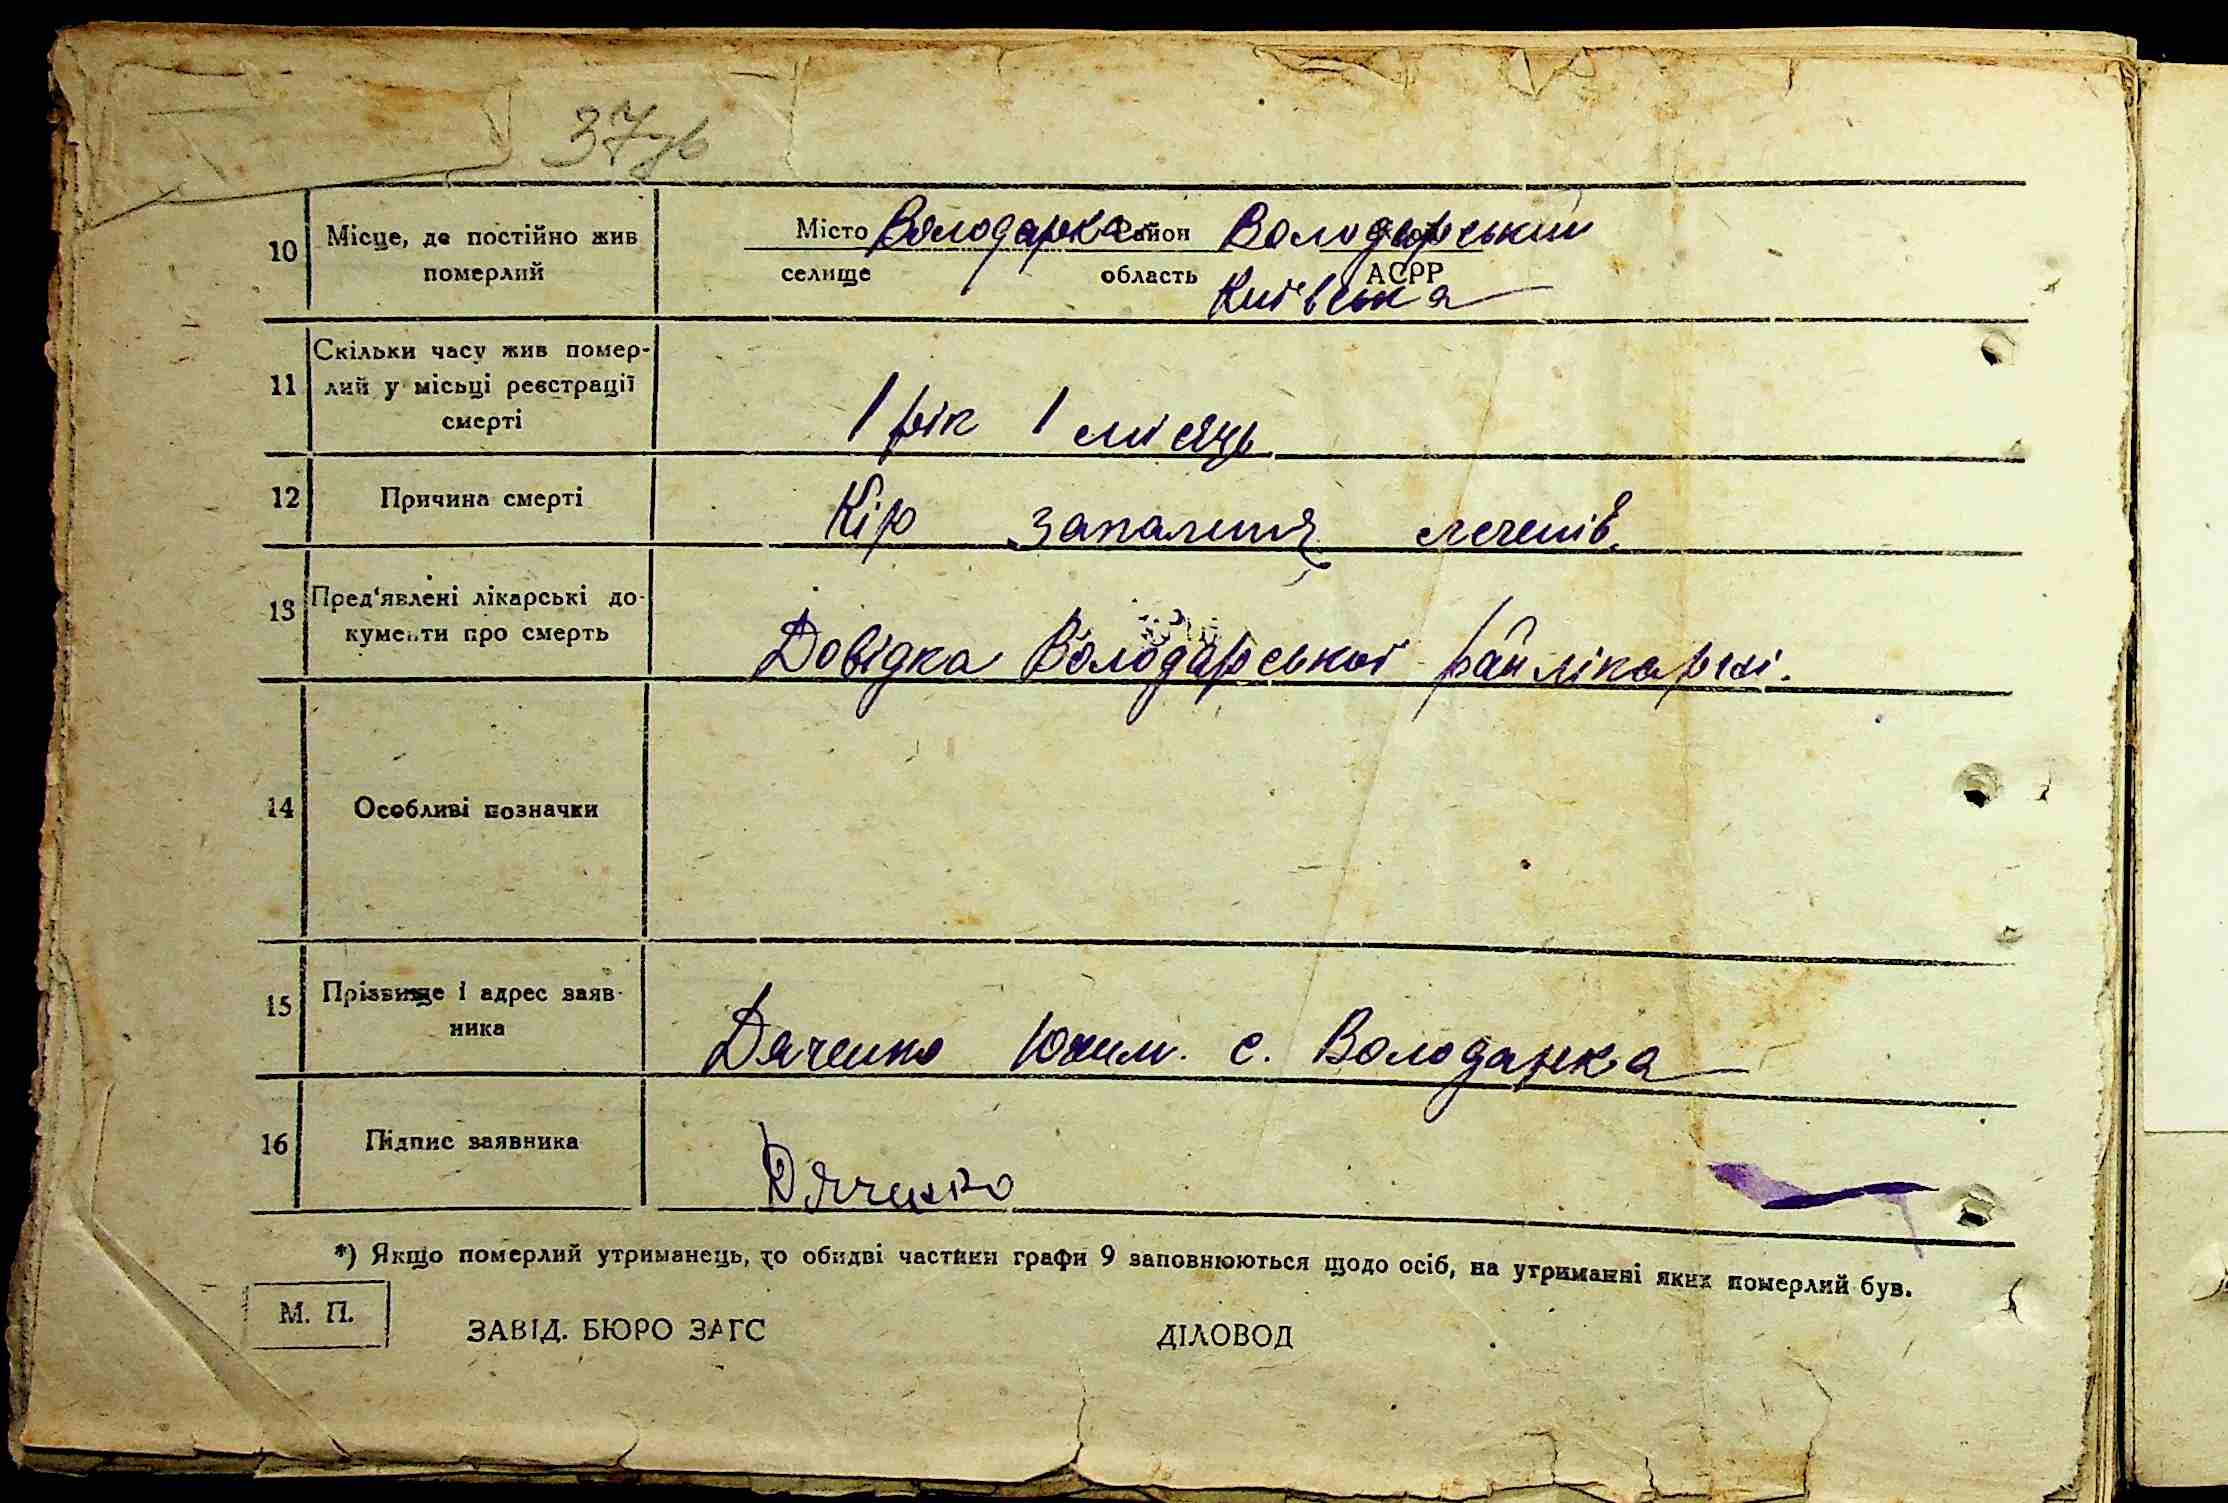 37зв
10 Місце, де постійно жив Місто Володарка район Володарський
померлий селище область Київська АСРР
Скільки часу жив помер-
11 лий у місьці реєстрації
смерті 1 рік 1 місяць
12 Причина смерті Кір запалення легенів.
13 Пред'явлені лікарські до-
кументи про смерть Довідка Володарської райлікарні.
14 Особливі позначки
15 Прізвище і адрес заяв-
ника Дяченко Юхим. с. Володарка
16 Підпис заявника Дяченко
*) Якщо померлий утриманець, то обидві частини графи 9 заповнюються щодо осіб, на утриманні яких померлий був.
М. П.
ЗАВІД. БЮРО ЗАГС ДІЛОВОД